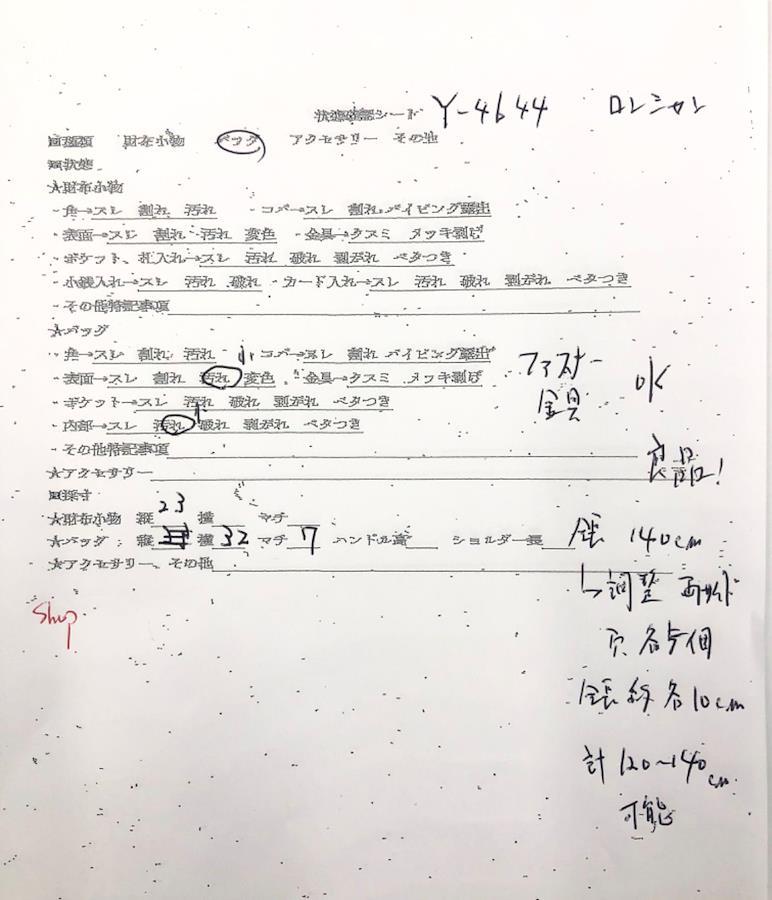 状態確認シート Y-4644 ロンシャン
■種類 財布小物 バッグ アクセサリー その他
■状態
★財布小物
・角→スレ 割れ 汚れ ・コバ→スレ 割れ パイピング露出
・表面→スレ 割れ 汚れ 変色 ・金具→クスミ メッキ剥げ
・ポケット、札入れ→スレ 汚れ 破れ 剥がれ ベタつき
・小銭入れ→スレ 汚れ 破れ ・カード入れ→スレ 汚れ 破れ 剥がれ ベタつき
・その他特記事項
★バッグ
・角→スレ 割れ 汚れ 小 ・コバ→スレ 割れ パイピング露出
・表面→スレ 割れ 汚れ 変色 ・金具→クスミ メッキ剥げ
ファスナー
金具
OK
・ポケット→スレ 汚れ 破れ 剥がれ ベタつき
小
・内部→スレ 汚れ 破れ 剥がれ ベタつき
・その他特記事項
良品!
★アクセサリー
■採寸
23
★財布小物 縦 横 マチ
★バッグ 縦 横 32 マチ 7 ハンドル高 ショルダー長 全長 140cm
★アクセサリー、その他
↳調整 両サイド
Shop
穴 各5個
全長 約 各10cm
計 120~140cm
可能